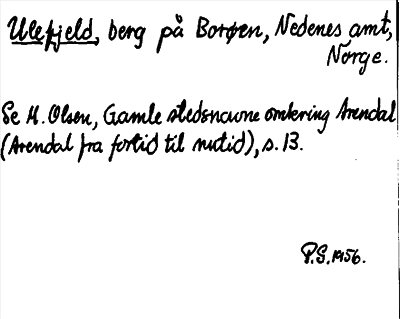 Ulefjeld, berg på Borøen, Nedenes amt,
Norge.
Se H. Olsen, Gamle stedsnavne omkring Arendal
(Arendal fra fortid til nutid), s. 13.
P.S. 1956.